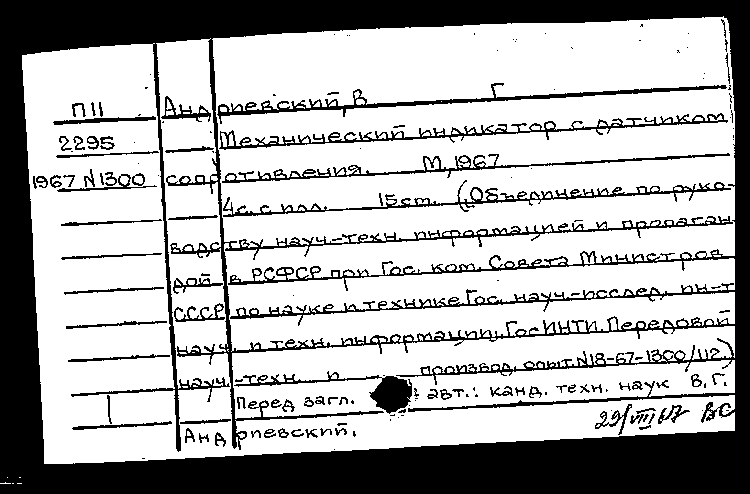 П11 Андриевский, В Г
2295 Механический индикатор с датчиком
1967 N1300 сопротивления. М, 1967
4с. с илл. 15 cm. (Объединение по руко-
водству науч.-техн. информацией и пропаган
дой в РСФСР при Гос. ком. Совета Министров
СССР по науке и технике. Гос. науч.-исслед. ин-т
науч. и техн. информации. ГосИНТИ. Передовой
науч.-техн. и производ. опыт. N18-67-1300/112.)
Перед загл. авт.: канд. техн. наук В. Г.
Андриевский.
29/VIII 67 ВС